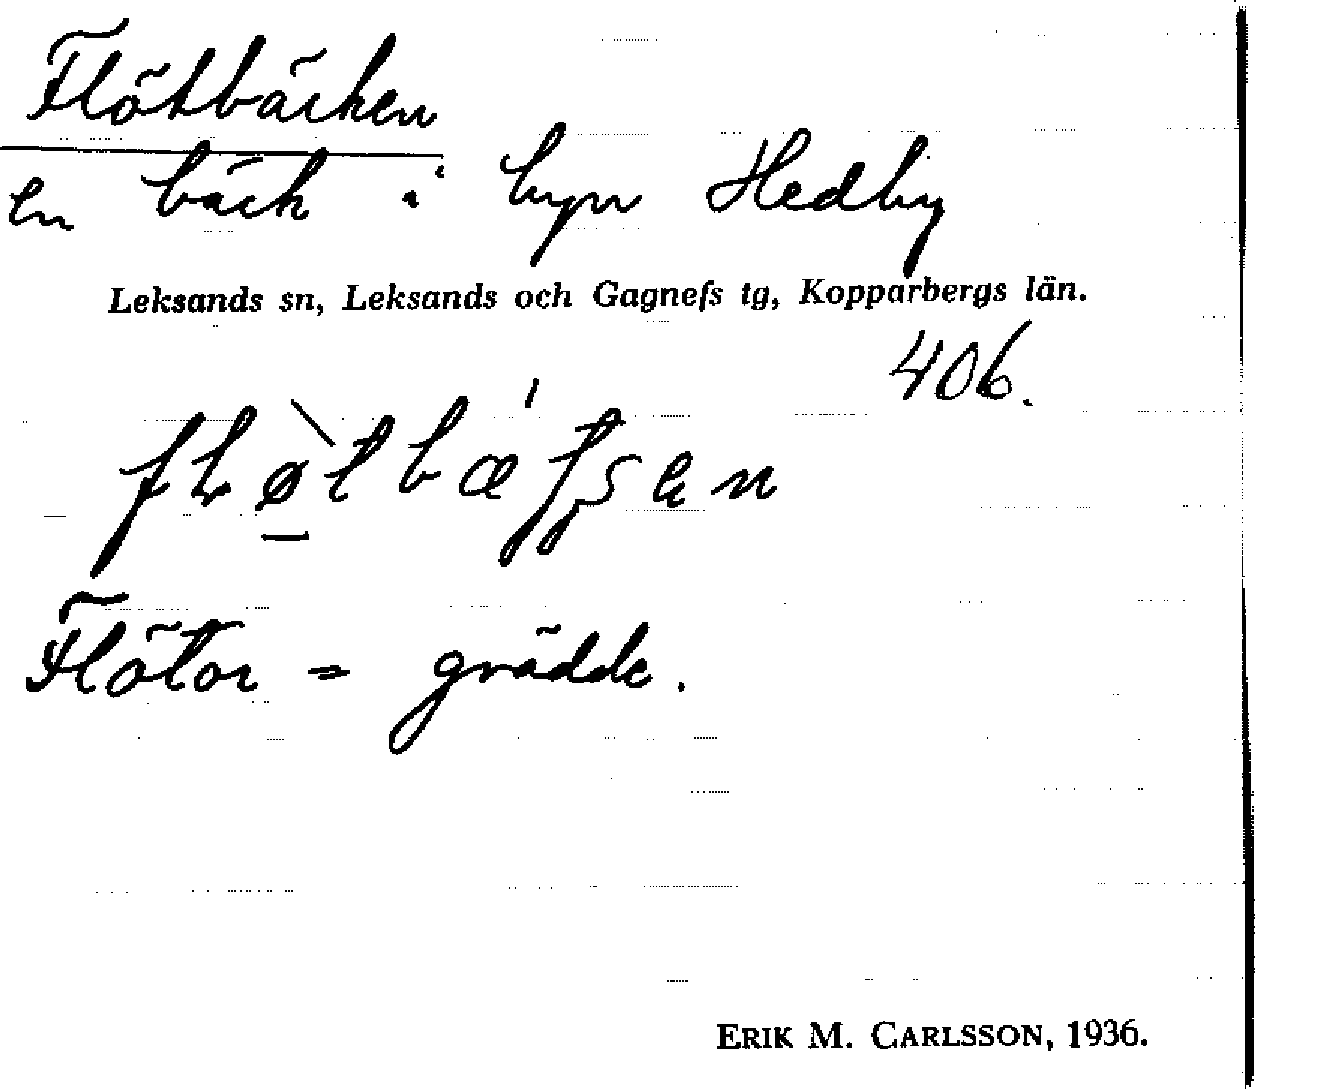 Flötbäcken
en bäck i byn Hedby
Leksands sn, Leksands och Gagnefs tg, Kopparbergs län.
406.
Flötor = grädde.
ERIK M. CARLSSON, 1936.